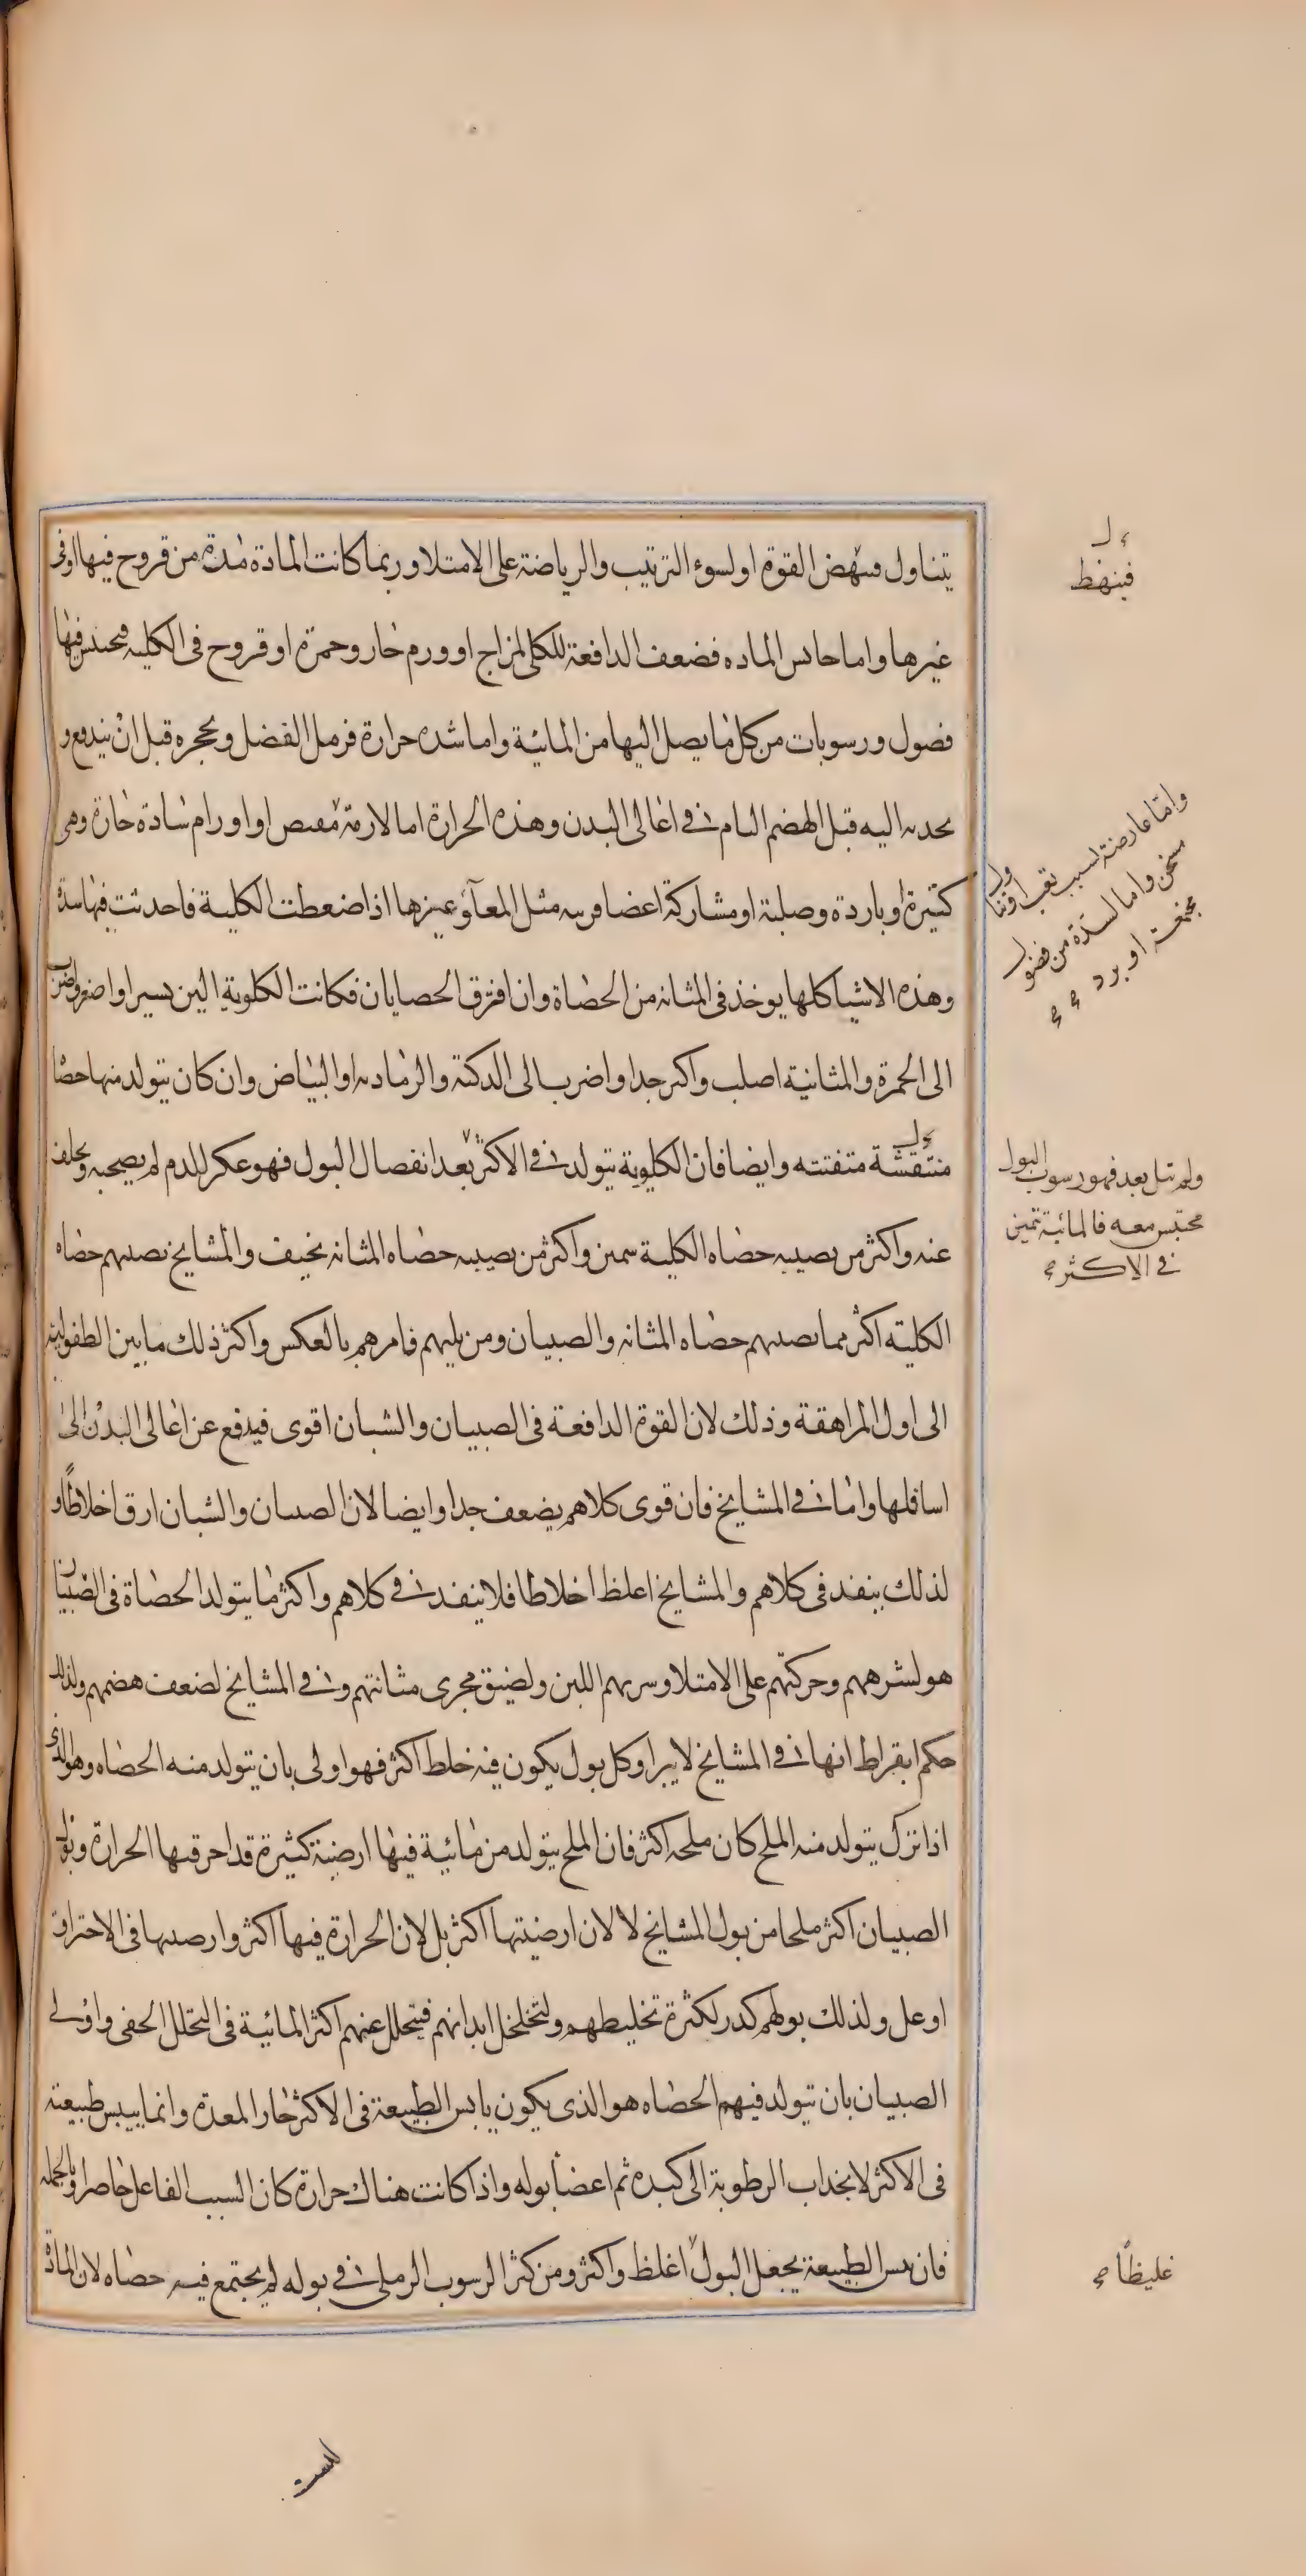 يتناول فينهض القوة او لسوء الترتيب والرياضة على الامتلا وربما كانت المادة مدة من قروح فيها او فى
غيرها واما حابس الماده فضعف الدافعة للكلى لمزاج او ورم حار وحمرة او قروح فى الكليه فيحتبس فيها
فصول ورسوبات من كل ما يصل اليها من المائية واما شده حرارة فرمل الفضل ويحجره قبل ان يندفع و
يحدبه اليه قبل الهضم التام فى اعالى البدن وهذه الحرارة اما لازمة او اورام سادة حارة وهى
كثيرة او باردة وصلبة او مشاركة اعضا قريبه مثل المعآ وغيرها اذا ضعطت الكلية فاحدثت فيها سدة
وهذه الاشيا كلها يوخذ فى المثانه من الحصاة وان افترق الحصايان فكانت الكلوية الين يسيرا واصغر واضرب
الى الحمرة والمثانية اصلب واكبر جدا واضرب الى الدكنة والرمادىه او البياض وان كان يتولد منها حصا
منتقشة متفتته وايضا فان الكلوية يتولد فى الاكثر بعد انفصال البول فهو عكر للدم لم يصحبه ويخلف
عنه واكثر من يصيبه حصاه الكلية سمين واكثر من يصيبه حصاه المثانه نحيف والمشايخ يصيبهم حصاه
الكلية اكثر مما يصيبهم حصاه المثانه والصبيان ومن يليهم فامرهم بالعكس واكثر ذلك ما بين الطفولية
الى اول المراهقة وذلك لان القوة الدافعة فى الصبيان والشبان اقوى فيدفع عن اعالى البدن الى
اسافلها واما فى المشايخ فان قوى كلاهم يضعف جدا وايضا لان الصبيان والشبان ارق اخلاطًا و
لذلك ينفد فى كلاهم والمشايخ اغلظ اخلاطا فلا ينفد فى كلاهم واكثر ما يتولد الحصاة فى الصبيان
هو لشرههم وحركتهم على الامتلا وشربهم اللبن ولضيق مجرى مثانتهم وفى المشايخ لضعف هضمهم ولذلك
حكم ابقراط انها فى المشايخ لا يبرا وكل بول يكون فيه خلط اكثر فهو اولى بان يتولد منه الحصاه وهو الذى
اذا ترك يتولد منه الملح كان ملحه اكثر فان الملح يتولد من مائية فيها ارضية كثيرة قد احرقتها الحرارة وبول
الصبيان اكثر ملحا من بول المشايخ لا لان ارضيتها اكثر بل لان الحرارة فيها اكثر وارضيتها فى الاحتراق
اوغل ولذلك بولهم كدر لكثرة تخليطهم ولتخلخل ابدانهم فيتحلل عنهم اكثر المائية فى التحلل الخفى واولى
الصبيان بان يتولد فيهم الحصاه هو الذى يكون يابس الطبيعة فى الاكثر حار المعدة وانما ييبس طبيعته
فى الاكثر لانجذاب الرطوبة الى كبده ثم اعضأ بوله واذا كانت هناك حرارة كان السبب الفاعل حاصرا وبالجمله
فان يبس الطبيعة يجعل البول اغلظ واكثر ومن كثر الرسوب الرملى فى بوله لم يجتمع فيه حصاه لان المادة
فينهظ
وامّا عارضة لسبب تعب او تناول
مسخن واما لسدة من فضول
مجتمعة او برد
ولم تسل بعد فهو رسوب البول
محتبس معه فالمائية تتميز
فى الاكثر صح
غليظًا صح
ليست